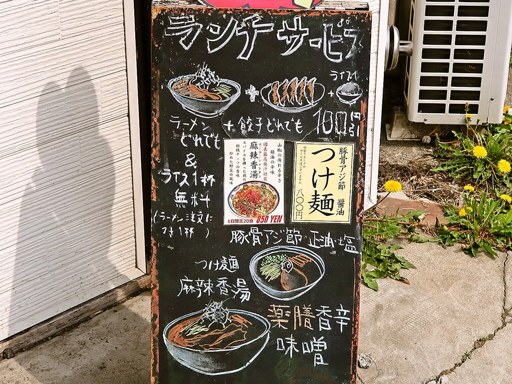 ランチサービス
ライス
ラーメン
どれでも
+餃子どれでも 100円引
&
ライス1杯
無料
(ラーメン注文に
つき1杯)
麻辣香湯
1日限定20食 850 YEN
豚骨アジ節 醤油
つけ麺
八〇〇円
豚骨アジ節・正油・塩
つけ麺
麻辣香湯
薬膳香辛
味噌